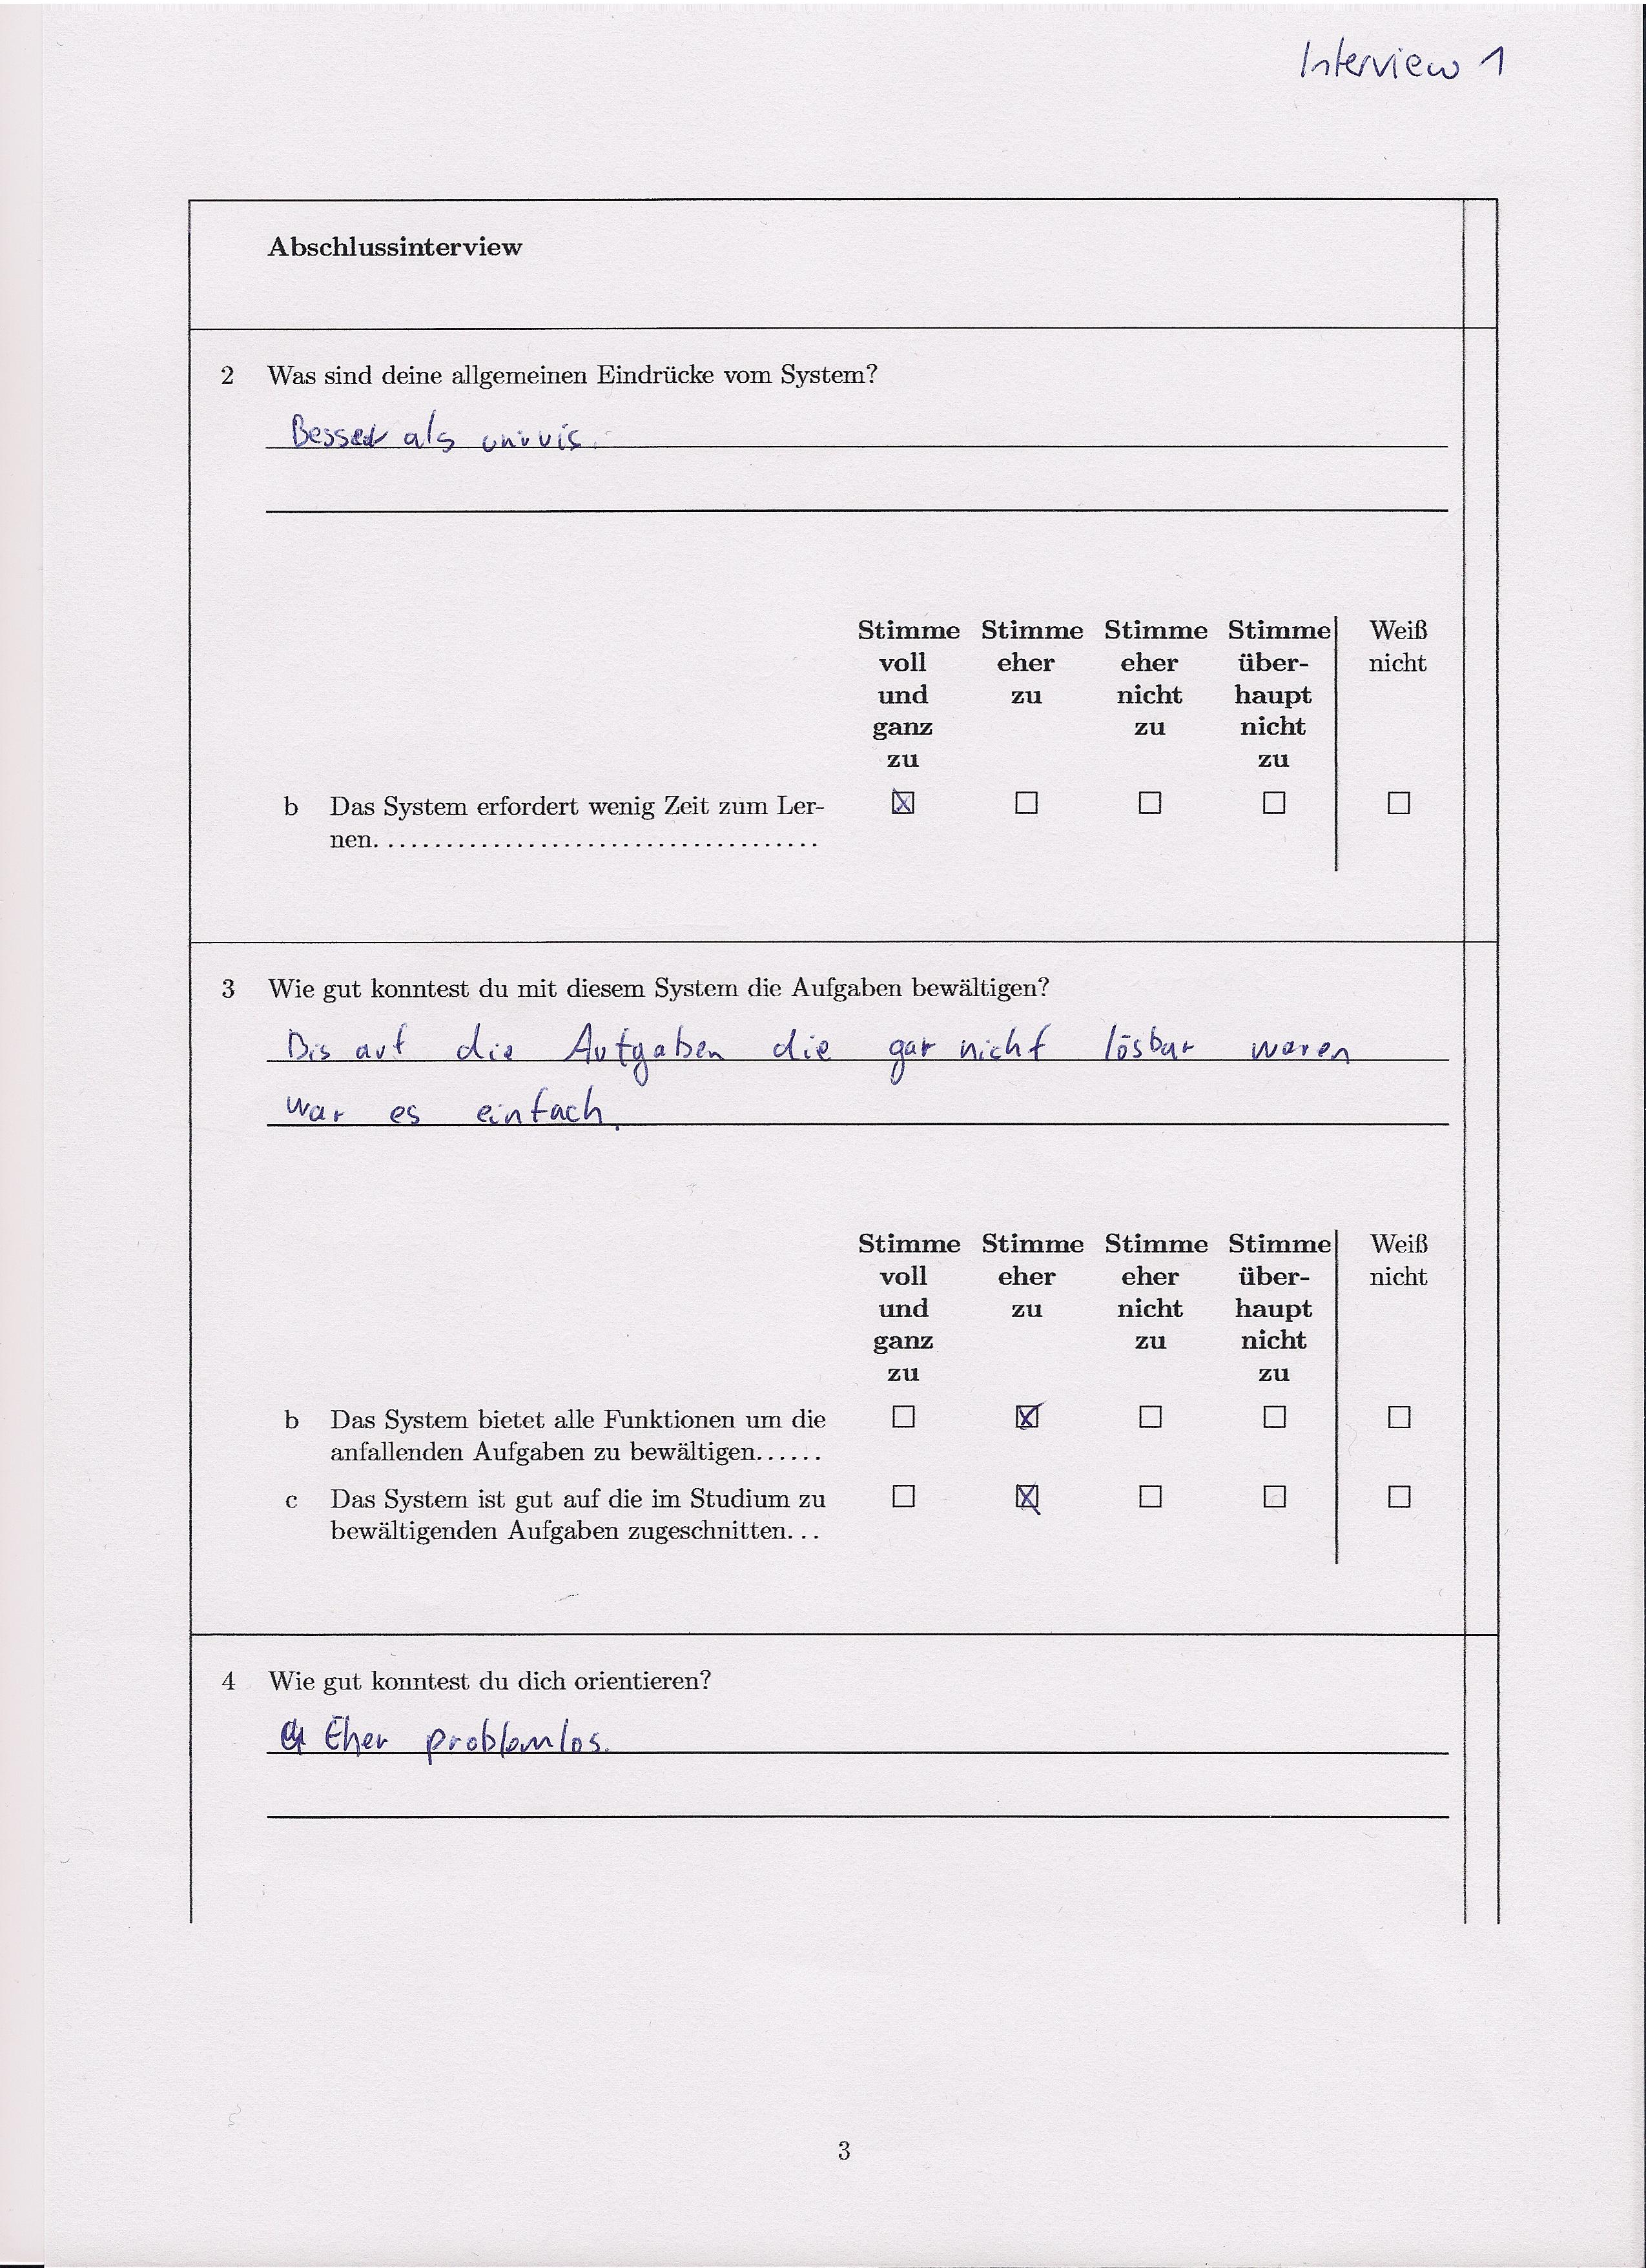 Interview 1
Abschlussinterview
2 Was sind deine allgemeinen Eindrücke vom System?
Besser als univis.
Stimme Stimme Stimme Stimme Weiß
voll eher eher über- nicht
und zu nicht haupt
ganz zu nicht
zu zu
b Das System erfordert wenig Zeit zum Ler-
nen. ....................................
3 Wie gut konntest du mit diesem System die Aufgaben bewältigen?
Bis auf die Aufgaben die gar nicht lösbar waren
war es einfach.
Stimme Stimme Stimme Stimme Weiß
voll eher eher über- nicht
und zu nicht haupt
ganz zu nicht
zu zu
b Das System bietet alle Funktionen um die
anfallenden Aufgaben zu bewältigen......
c Das System ist gut auf die im Studium zu
bewältigenden Aufgaben zugeschnitten...
4 Wie gut konntest du dich orientieren?
Eher problemlos.
3